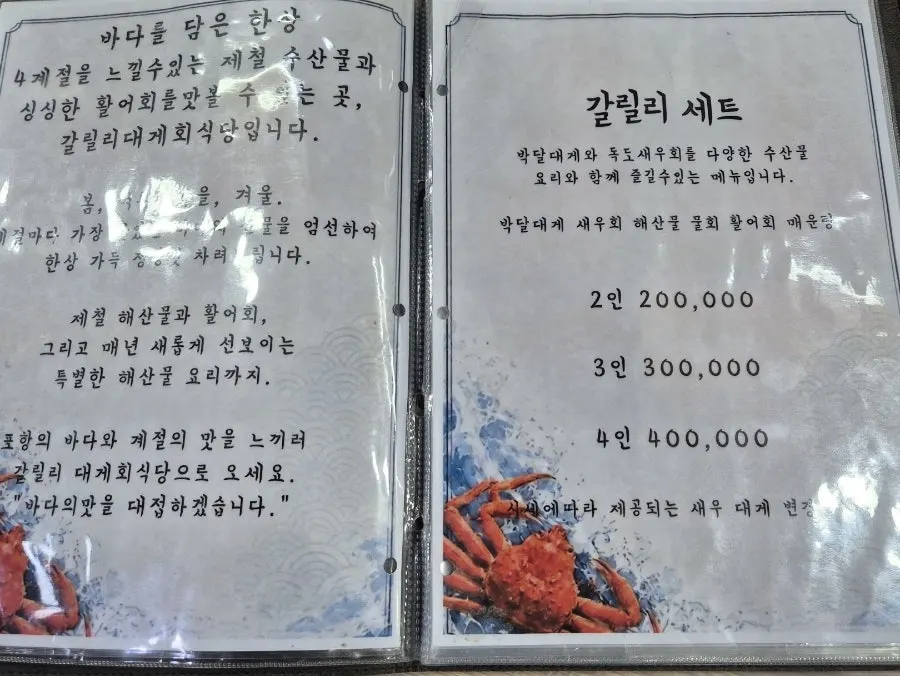 바다를 담은 한상
4계절을 느낄수있는 제철 수산물과
싱싱한 활어회를맛볼 수 는 곳,
갈릴리대게회식당입니다.
봄, 을, 겨울.
가장 엄선하여
한상 가득 차려 립니다.
제철 해산물과 활어회,
그리고 매년 새롭게 선보이는
특별한 해산물 요리까지.
포항의 바다와 계절의 맛을 느끼러
갈릴리 대게회식당으로 오세요.
"바다의맛을 대접하겠습니다."
갈릴리 세트
박달대게와 독도새우회를 다양한 수산물
요리와 함께 즐길수있는 메뉴입니다.
박달대게 새우회 해산물 물회 활어회 매운탕
2인 200,000
3인 300,000
4인 400,000
시세에따라 제공되는 새우 대게 변경